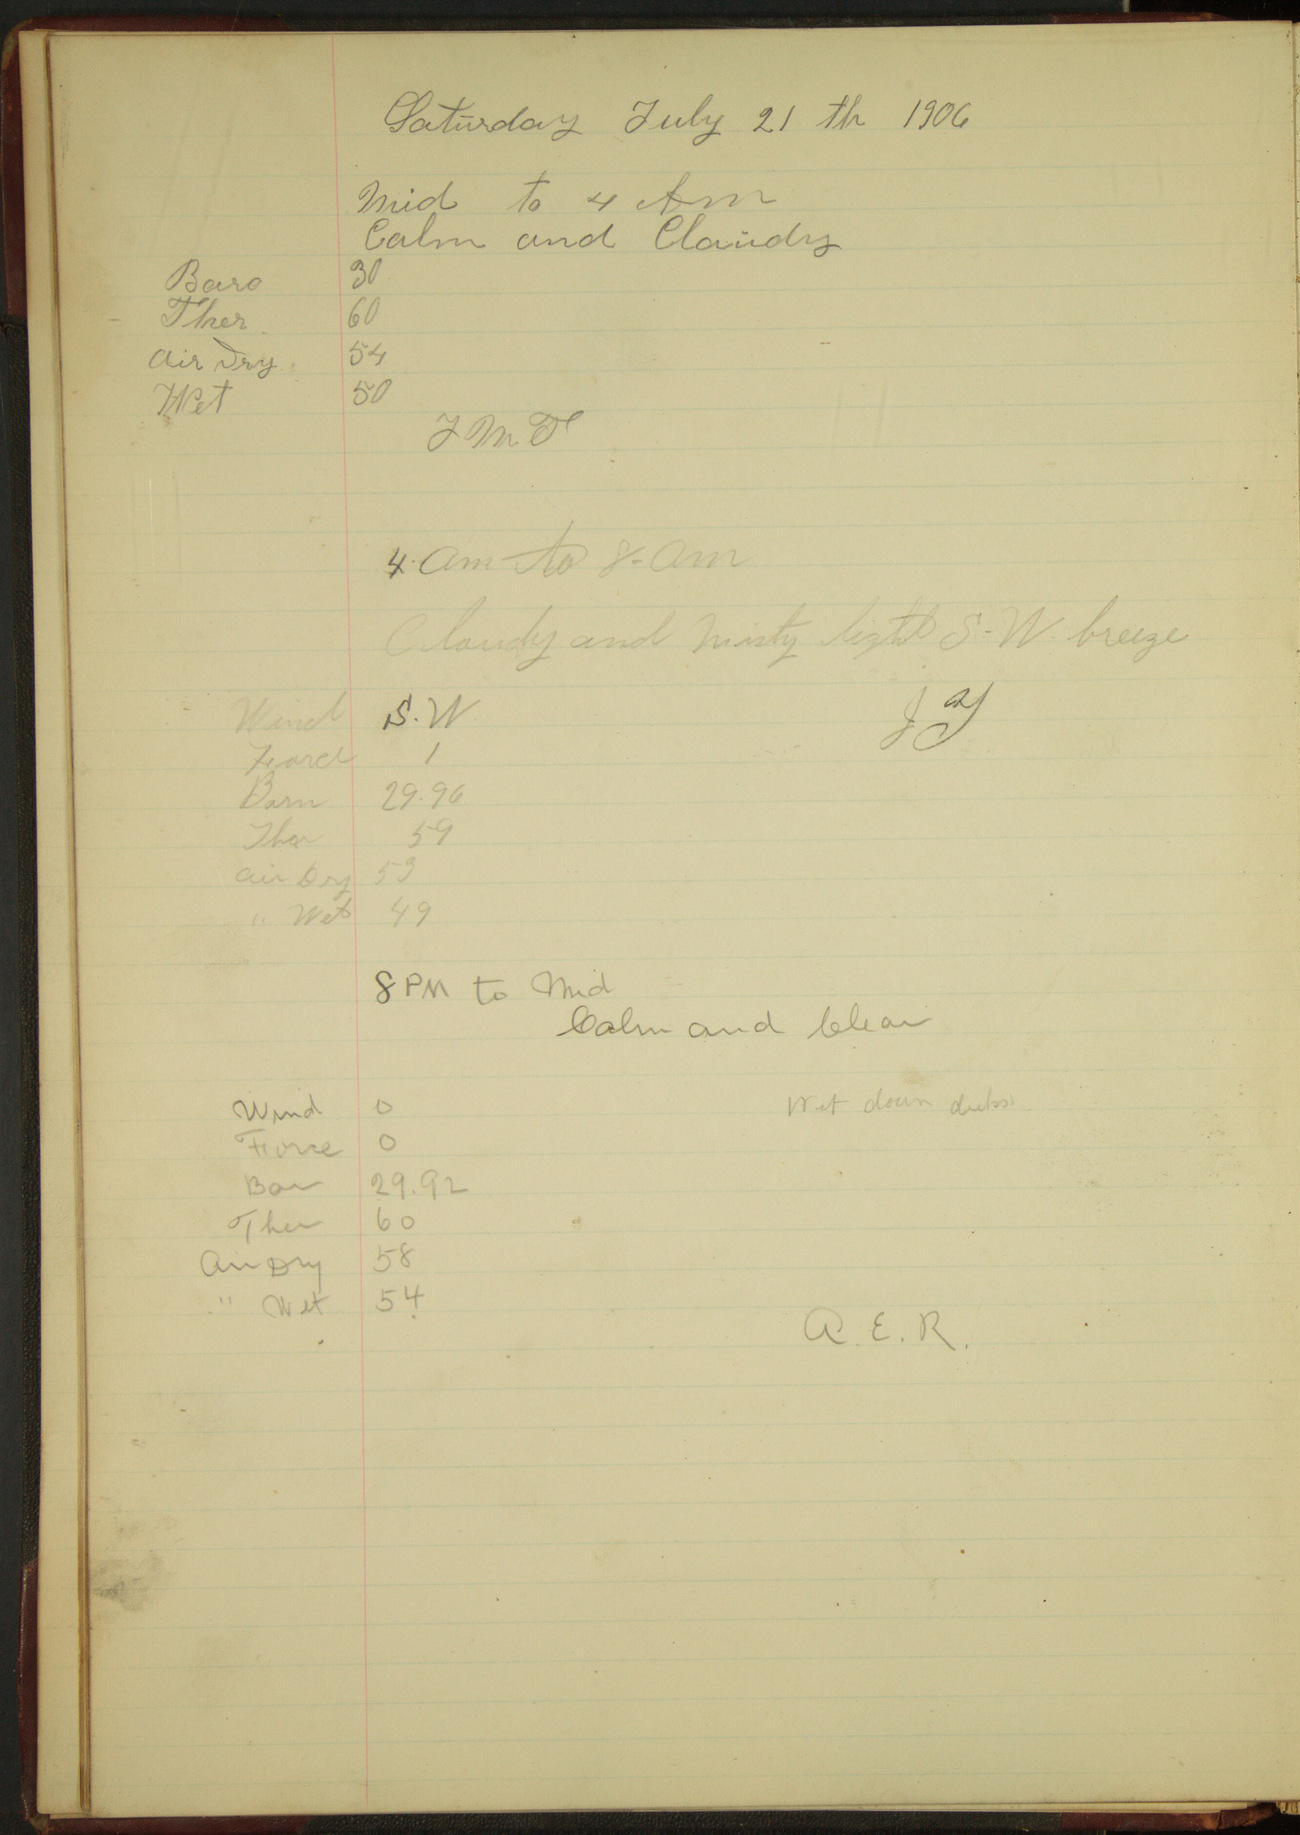 Saturday July 21 th 1906
Mid to 4 Am
Calm and Cloudy
Baro 30
Ther 60
Air Dry 54
Wet 50
J M F
4 am to 8 am
Cloudy and misty light S-W. breeze
Wind S.W
J
Force 1
Barn 29.96
Ther 59
air Dry 53
" Wet 49
8 PM to Mid
Calm and Clear
Wind 0 Wet down decks
Force 0
Bar 29.92
Ther 60
Air Dry 58
" Wet 54
A. E. R.